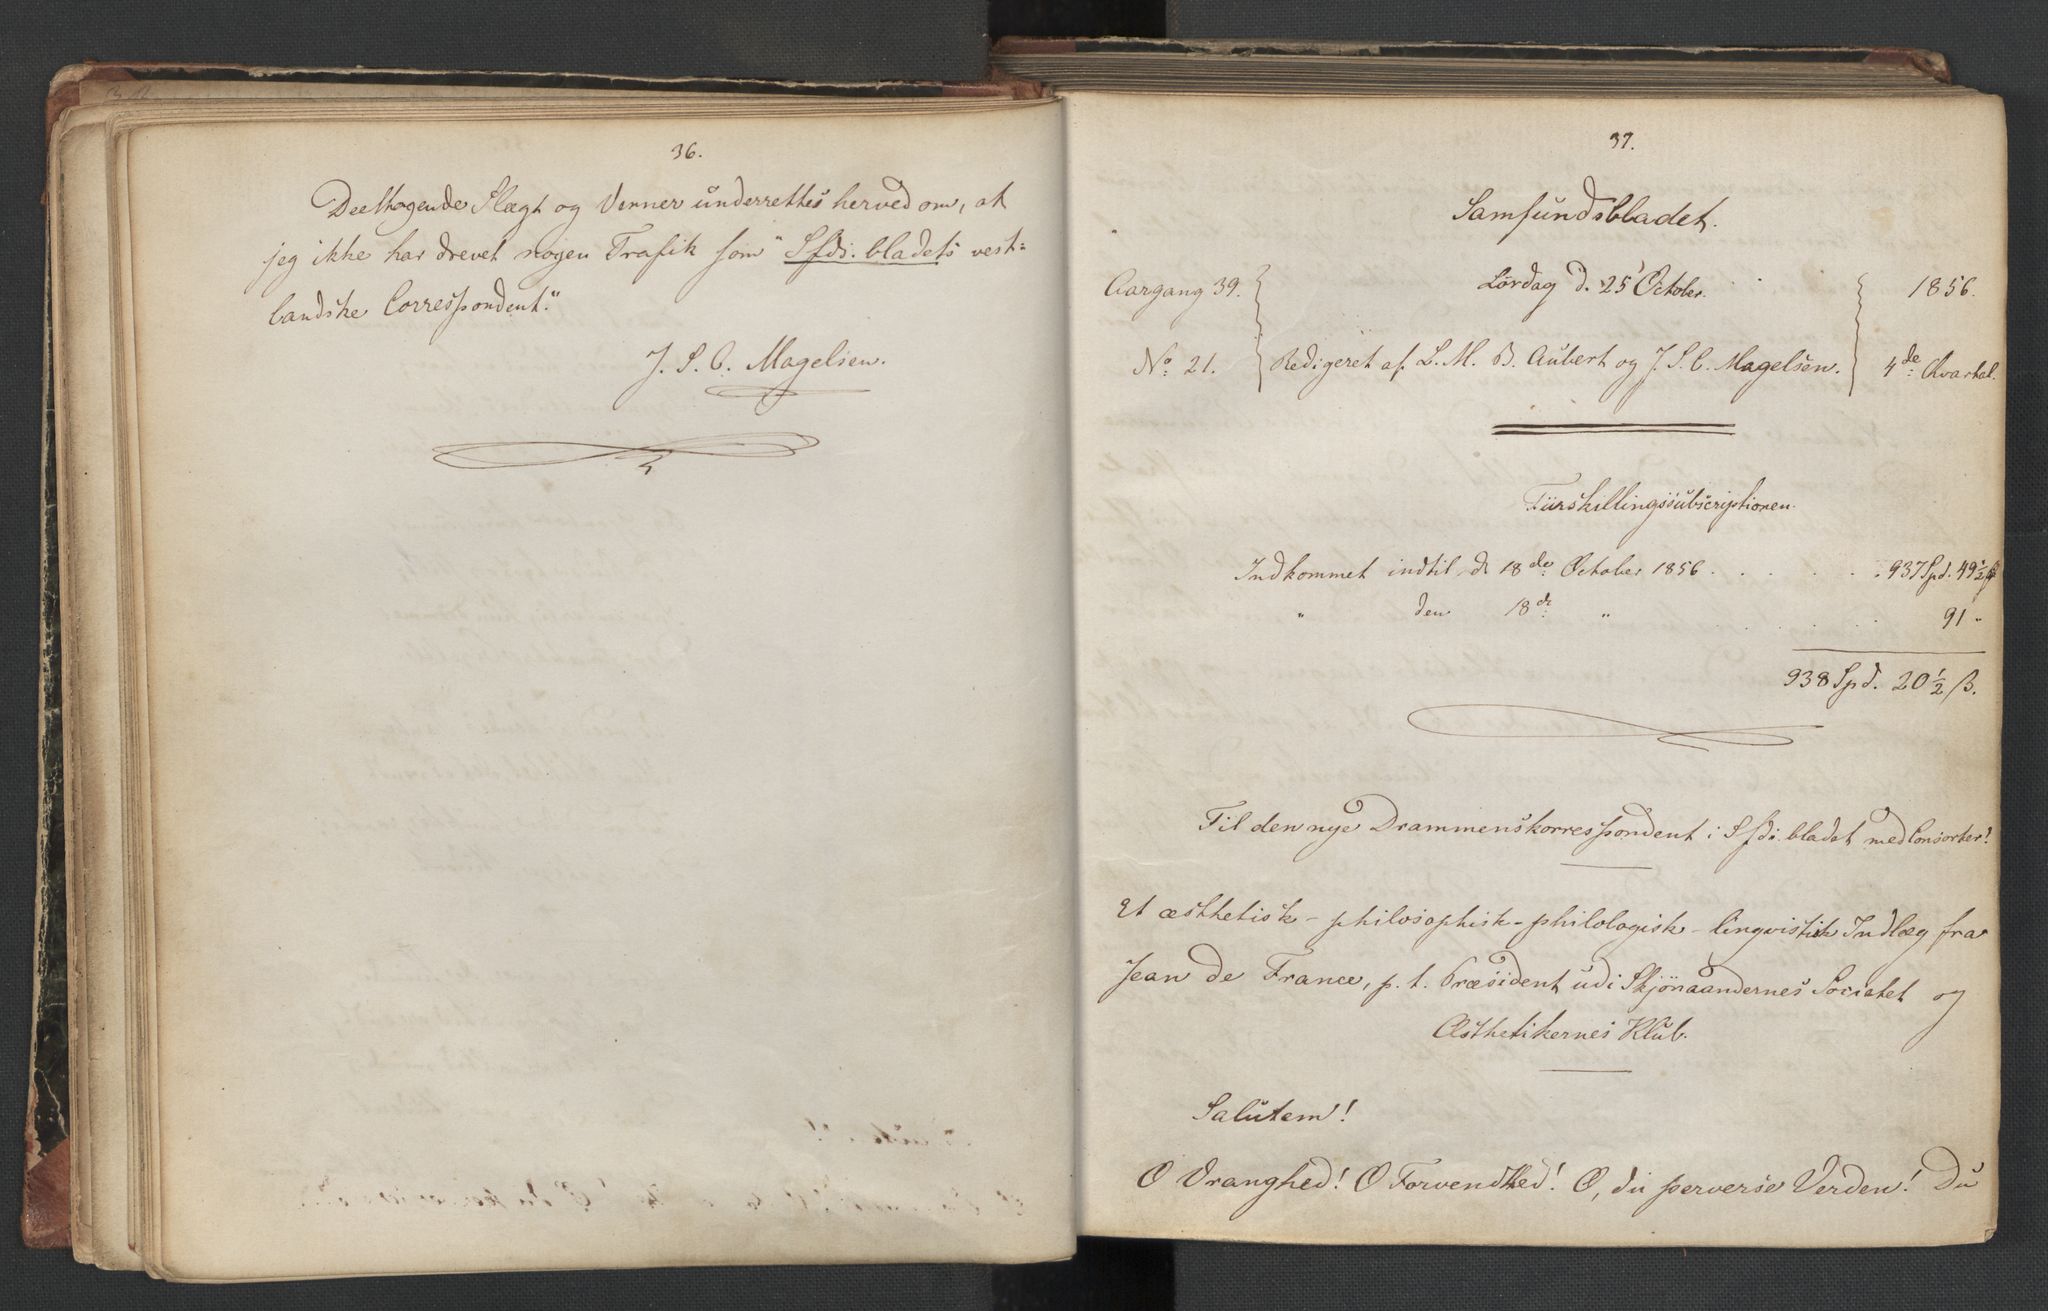 36.
Deeltagende Slægt og Venner underrettes herved om, at
jeg ikke har drevet nogen Trafik som "Sfds. bladets vest-
landske Correspondent."
J. S. C. Magelsen.
37.
Samfundsbladet.
Aargang 39. Lördag d. 25 October. 1856.
No. 21. Redigeret af L. M. B. Aubert og J. S. C. Magelsen. 4de Kvartal.
Tiirskillingssubscriptionen.
Indkommet indtil d 18de October 1856 . . . . . . . 937 Spd. 49 1/2 ß
" den 18de " . . . . . . 91 "
938 Spd. 20 1/2 ß.
Til den nye Drammenskorrespondent i Sfds. bladet med Consorter!
Et æsthetisk-philosophisk-philologisk-lingvistisk Indlæg fra
Jean de France, p. t. Præsident udi Skjönaandernes Societet og
Æsthetikernes Klub.
Salutem!
O Vranghed! O Forvendthed! O, du perverse Verden! Du